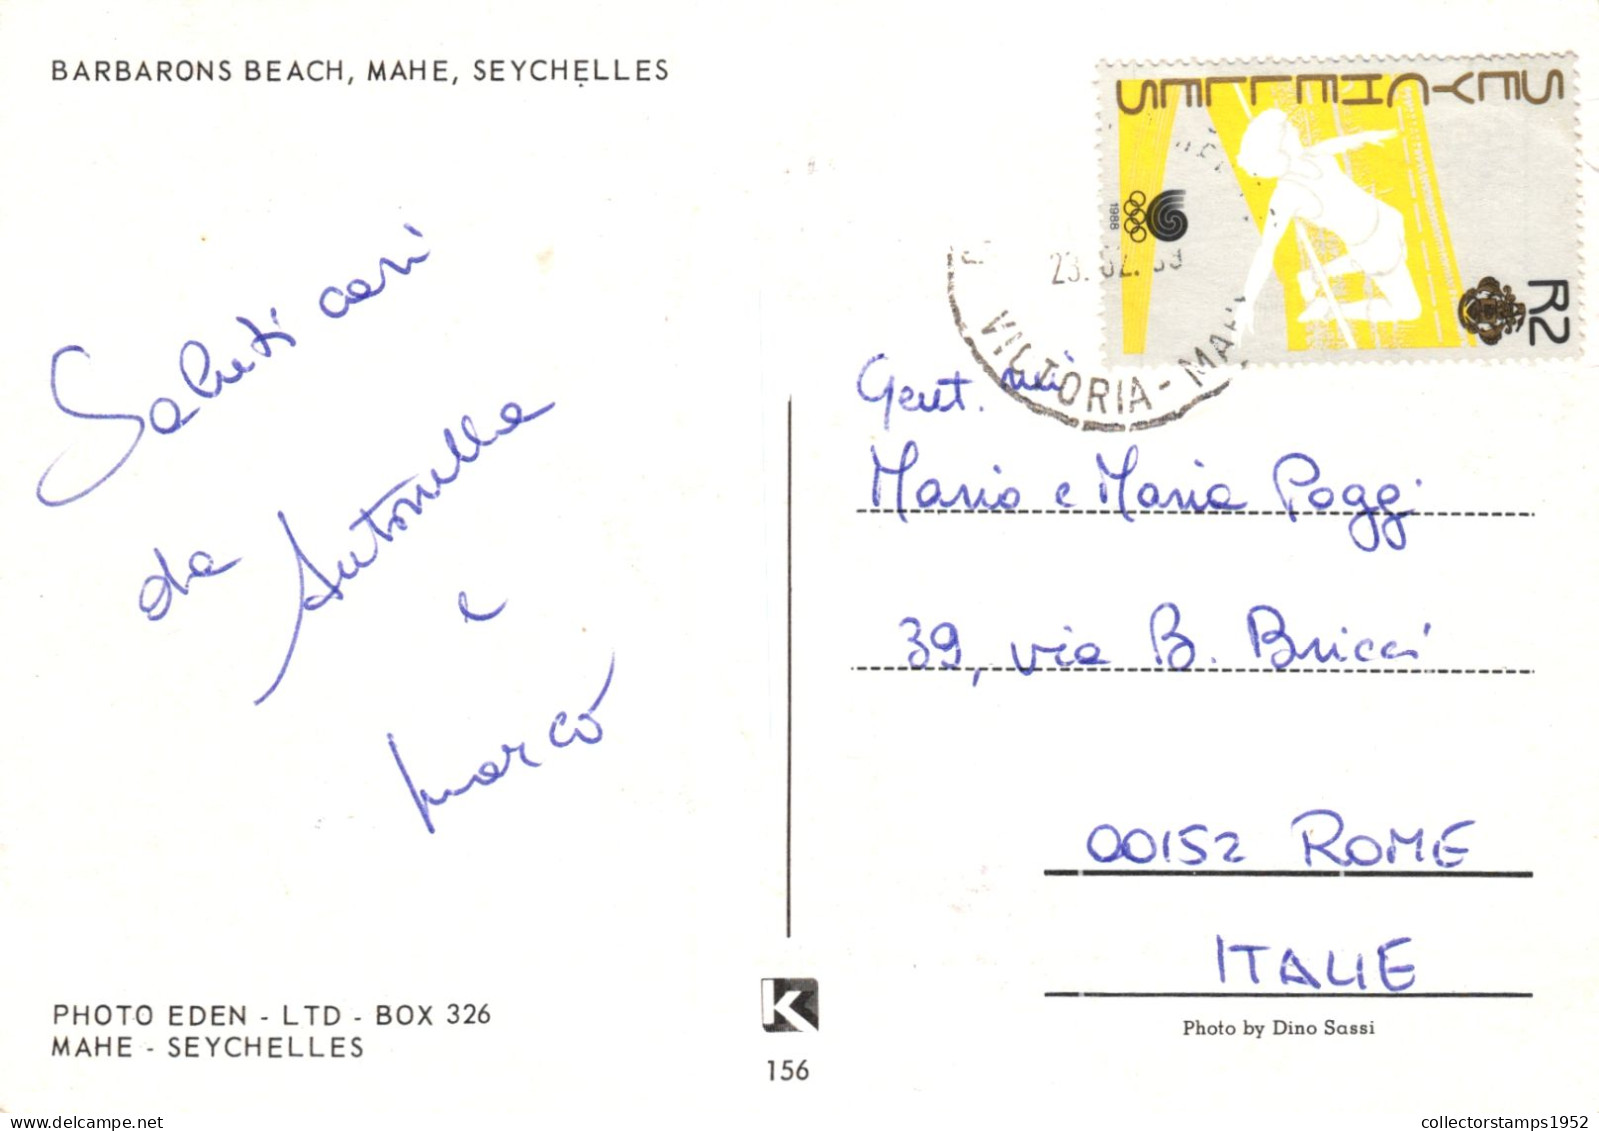 BARBARONS BEACH, MAHE, SEYCHELLES
SEYCHELLES
1988
R2
23. 02. 89
VICTORIA - MAHE
Saluti cari
da Antonella
e
Marco
Gent.mi
Mario e Maria Poggi
39, via B. Bricci
00152 ROME
ITALIE
PHOTO EDEN - LTD - BOX 326
MAHE - SEYCHELLES
K
156
Photo by Dino Sassi
collectorstamps1952